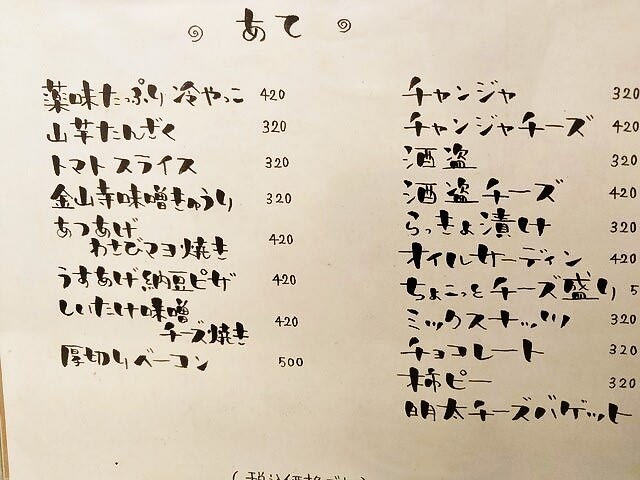 あて
薬味たっぷり冷やっこ 420
山芋たんざく 320
トマトスライス 320
金山寺味噌きゅうり 320
あつあげ
わさびマヨ焼き 420
うすあげ納豆ピザ 420
しいたけ味噌
チーズ焼き 420
厚切りベーコン 500
チャンジャ 320
チャンジャチーズ 420
酒盗 320
酒盗チーズ 420
らっきょ漬け 320
オイルサーディン 420
ちょこっとチーズ盛り 5
ミックスナッツ 320
チョコレート 320
柿ピー 320
明太チーズバゲット